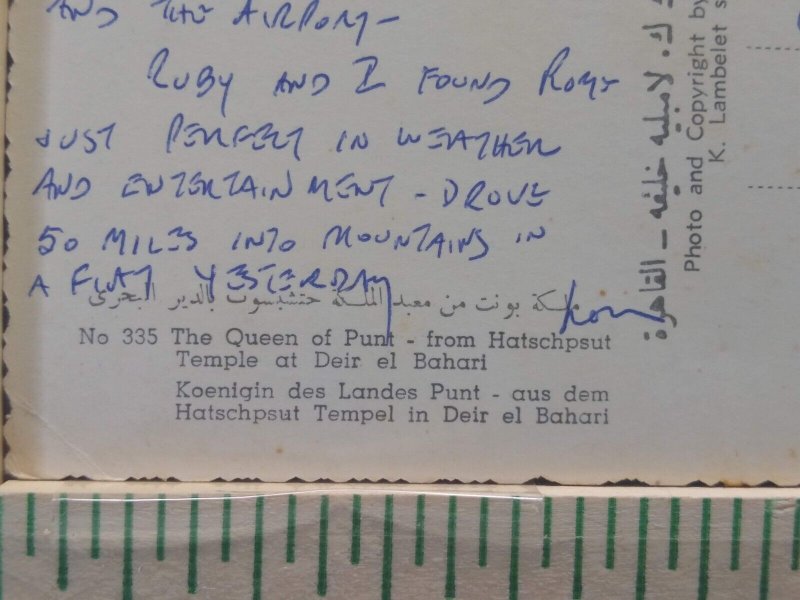 AND THE AIRPORT -
RUBY AND I FOUND ROME
JUST PERFECT IN WEATHER
AND ENTERTAINMENT - DROVE
50 MILES INTO MOUNTAINS IN
A FIAT YESTERDAY
ملكة بونت من معبد الملكة حتشبسوت بالدير البحرى
No 335 The Queen of Punt - from Hatschpsut
Temple at Deir el Bahari
Koenigin des Landes Punt - aus dem
Hatschpsut Tempel in Deir el Bahari
ك. لامبليه خليفه – القاهرة
Photo and Copyright by
K. Lambelet s